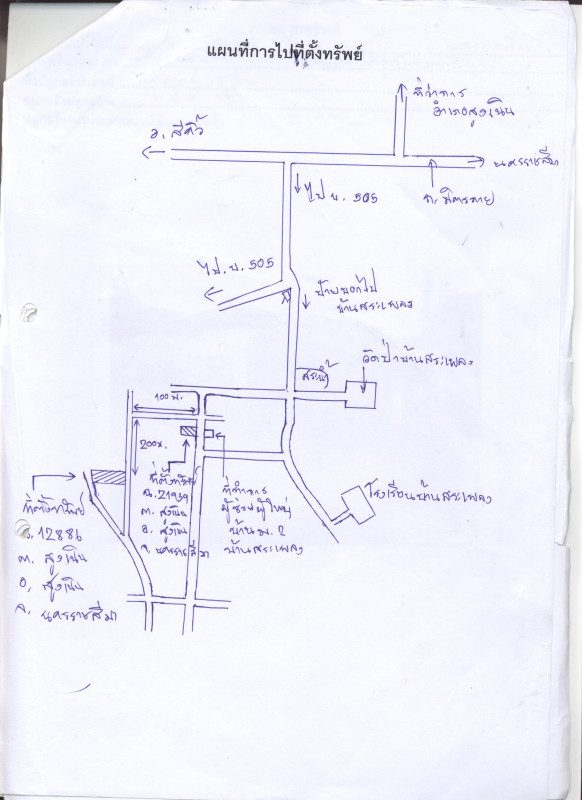 แผนที่การไปที่ตั้งทรัพย์
ที่ว่าการ
อำเภอสูงเนิน
อ. สีคิ้ว
นครราชสีมา
ถ. มิตรภาพ
ไป บ. 505
ไป. บ. 505
ป้ายบอกไป
บ้านสระเพลง
สระน้ำ
วัดป่าบ้านสระเพลง
100 ม.
200 ม.
ที่ตั้งทรัพย์
ฉ. 21939
ต. สูงเนิน
อ. สูงเนิน
จ. นครราชสีมา
ที่ทำการ
ผู้ช่วยผู้ใหญ่
บ้าน ม. 2
บ้านสระเพลง
โรงเรียนบ้านสระเพลง
ที่ตั้งทรัพย์
ฉ. 12886
ต. สูงเนิน
อ. สูงเนิน
จ. นครราชสีมา